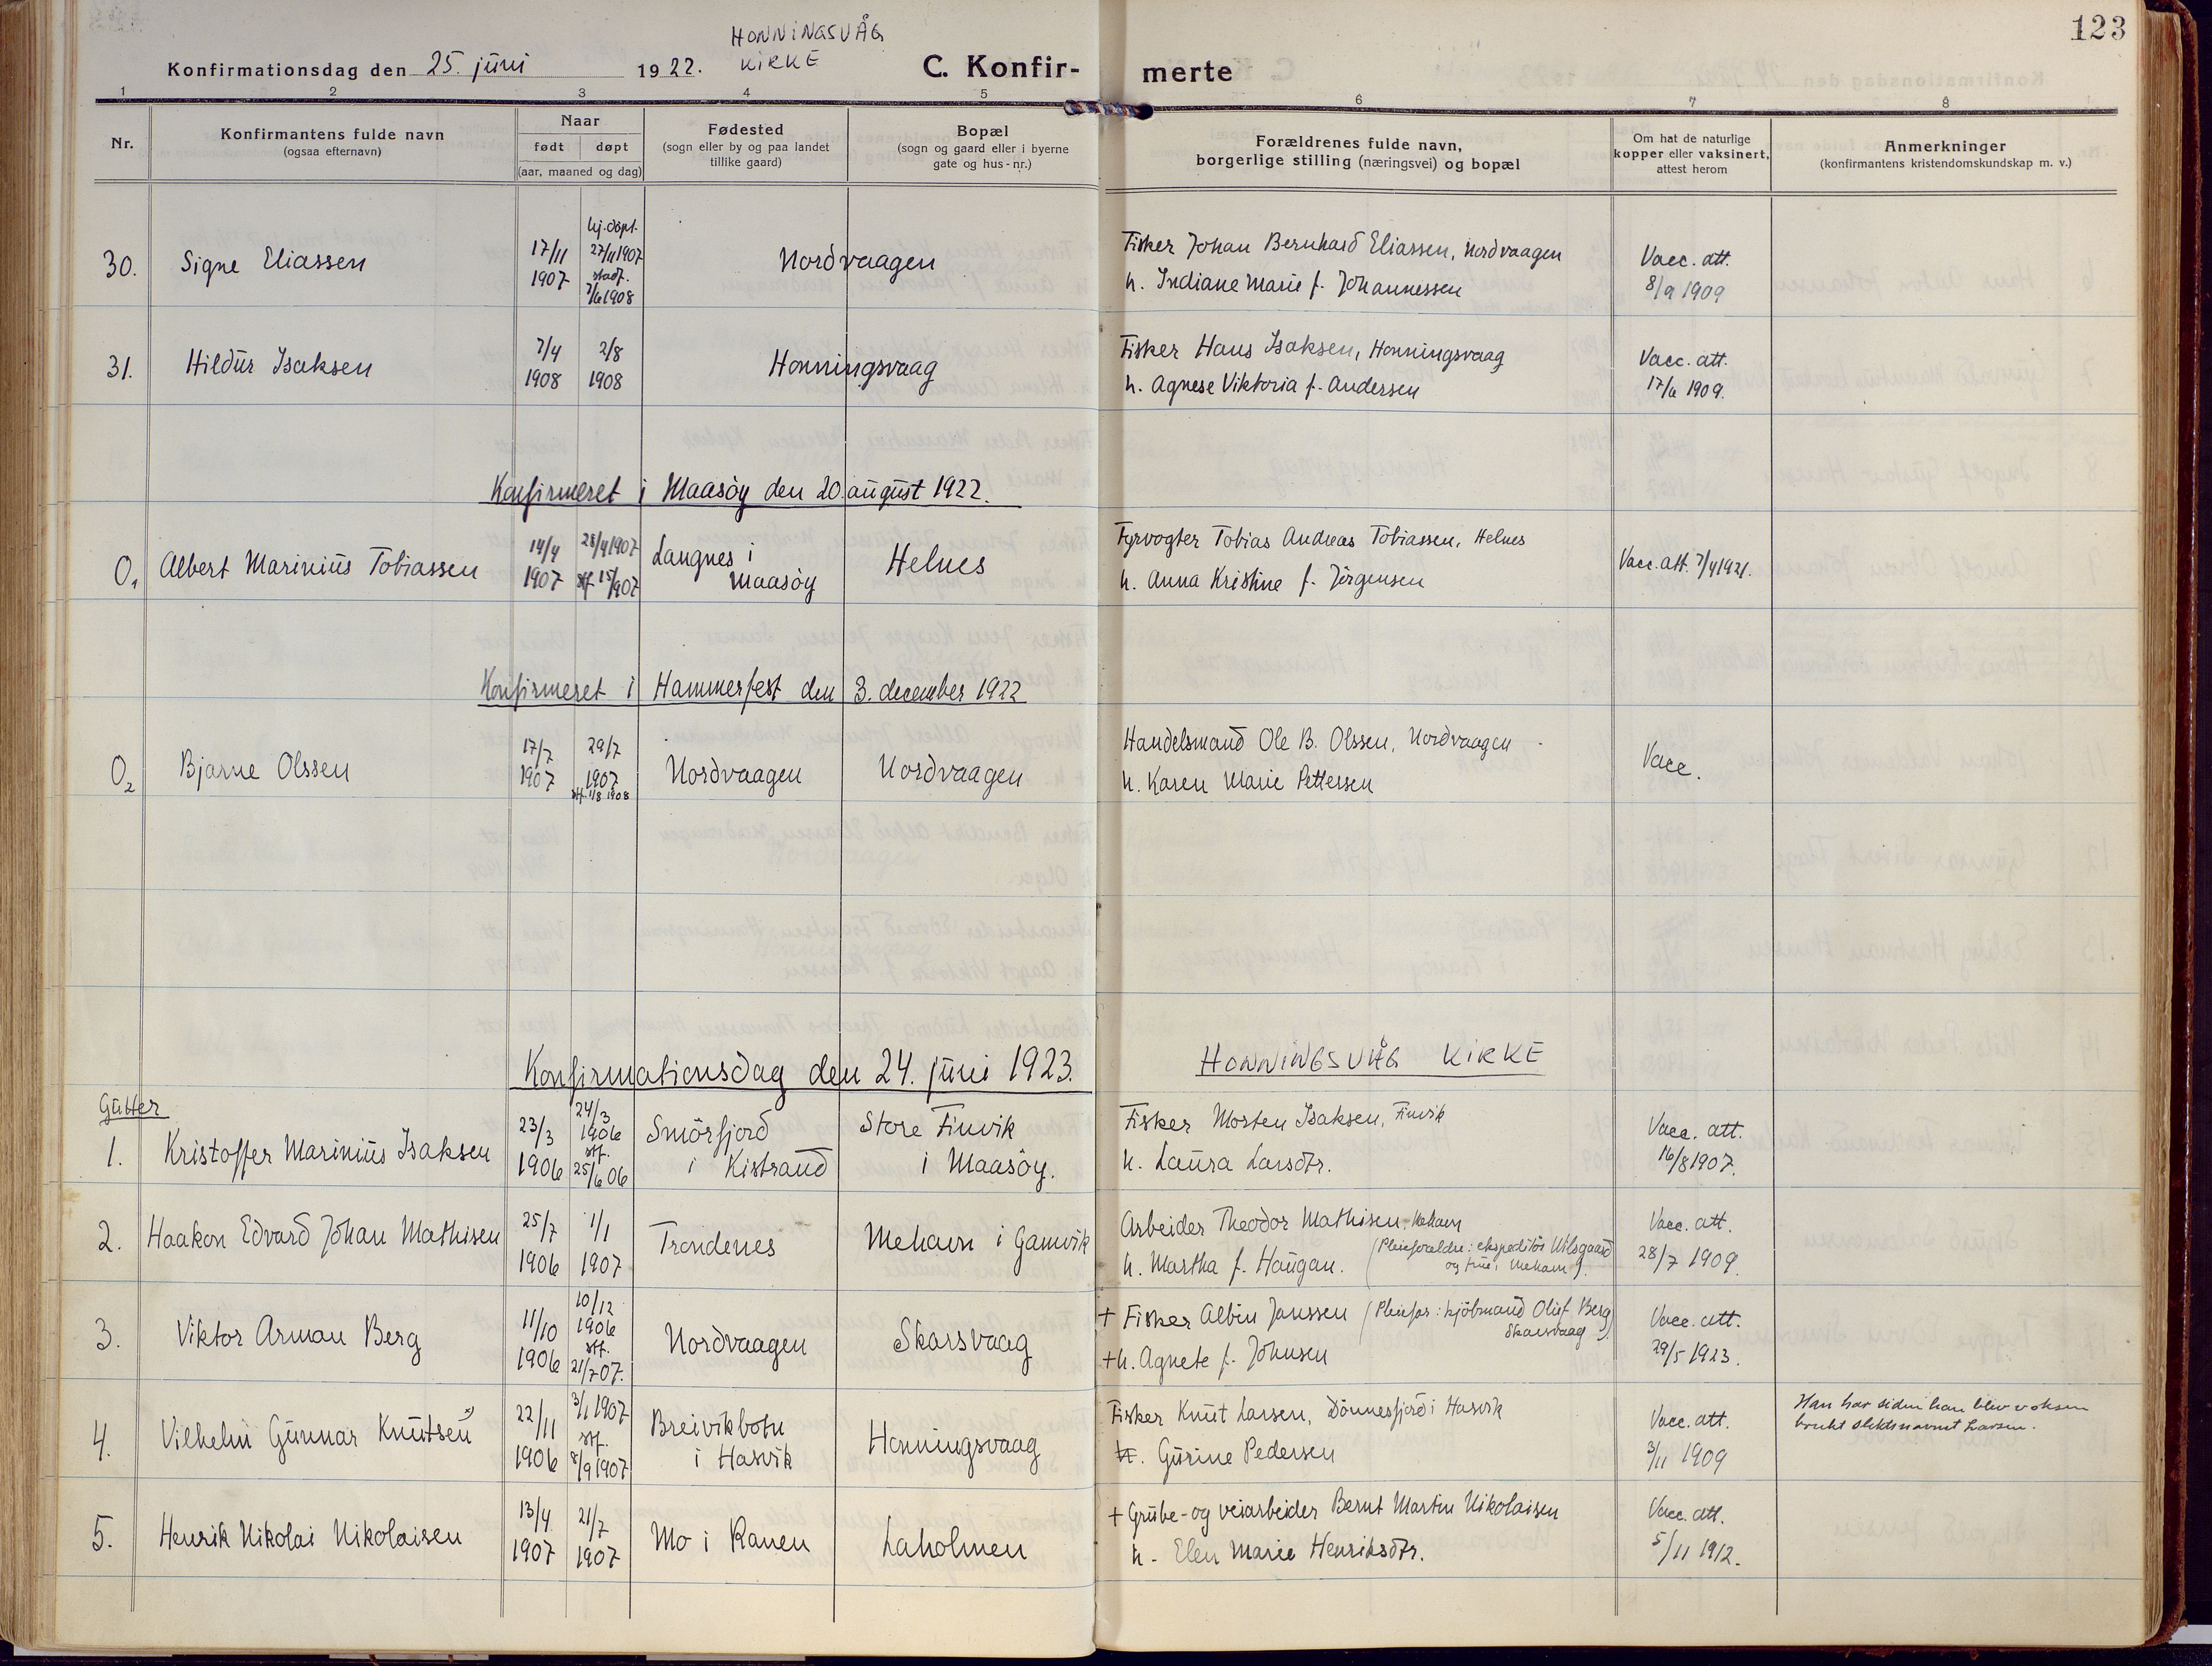 123
HONNINGSVÅG
KIRKE
Konfirmationsdag den 25. juni 1922.
C. Konfir- merte
1 2 3 4 5 6 7 8
Nr.
Konfirmantens fulde navn
(ogsaa efternavn)
Naar
født døpt
(aar, maaned og dag)
Fødested
(sogn eller by og paa landet
tillike gaard)
Bopæl
(sogn og gaard eller i byerne
gate og hus-nr.)
Forældrenes fulde navn,
borgerlige stilling (næringsvei) og bopæl
Om hat de naturlige
kopper eller vaksinert,
attest herom
Anmerkninger
(konfirmantens kristendomskundskap m. v.)
30. Signe Eliassen
17/11
1907
hj.døpt.
27/11 1907
stadf.
7/6 1908
Nordvaagen
Fisker Johan Bernhard Eliassen, Nordvaagen
h. Indiane Marie f. Johannessen
Vacc. att.
8/9 1909
31. Hildur Isaksen
7/4
1908
2/8
1908
Honningsvaag
Fisker Hans Isaksen, Honningsvaag
h. Agnese Viktoria f. Andersen
Vacc. att.
17/6 1909.
Konfirmeret i Maasöy den 20. august 1922.
0₁ Albert Marinius Tobiassen
14/4
1907
28/4 1907
stf. 15/9 1907
Langnes i
Maasöy
Helnes
Fyrvogter Tobias Andreas Tobiassen, Helnes
h. Anna Kristine f. Jörgensen
Vacc. att. 7/4 1921.
Konfirmeret i Hammerfest den 3. december 1922
0₂ Bjarne Olssen
17/7
1907
29/7
1907
stf. 1/8 1908
Nordvaagen
Nordvaagen
Handelsmand Ole B. Olssen, Nordvaagen
h. Karen Marie Pettersen
Vacc.
Konfirmationsdag den 24. juni 1923.
HONNINGSVÅG KIRKE
Gutter
1. Kristoffer Marinius Isaksen
23/3
1906
24/3
1906
stf.
25/6 06
Smörfjord
i Kistrand
Store Finvik
i Maasöy.
Fisker Morten Isaksen, Finvik
h. Laura Larsdtr.
Vacc. att.
16/8 1907.
2. Haakon Edvard Johan Mathisen
25/7
1906
1/1
1907
Trondenes
Mehavn i Gamvik
Arbeider Theodor Mathisen, Mehavn
h. Martha f. Haugan.
(Pleieforældre: ekspeditör Wilsgaard
og frue i Mehavn).
Vacc. att.
28/7 1909.
3. Viktor Arman Berg
11/10
1906
10/12
1906
stf.
21/7 07.
Nordvaagen
Skarsvaag
+ Fisker Albin Janssen (Pleiefar: kjöbmand Oluf Berg
Skarsvaag.)
+ h. Agnete f. Johnsen
Vacc. att.
29/5 1923.
4. Vilhelm Gunnar Knutsen x)
22/11
1906
3/1 1907
stf.
8/9 1907
Breivikbotn
i Hasvik
Honningsvaag
Fisker Knut Larsen, Dönnesfjord i Hasvik
h. Gurine Pedersen
Vacc. att.
3/11 1909
Han har siden han blev voksen
brukt slektsnavnet Larsen.
5. Henrik Nikolai Nikolaisen
13/4
1907
21/7
1907
Mo i Ranen
Laholmen
+ Grube- og veiarbeider Bernt Martin Nikolaisen
h. Elen Marie Henriksdtr.
Vacc. att.
5/11 1912.